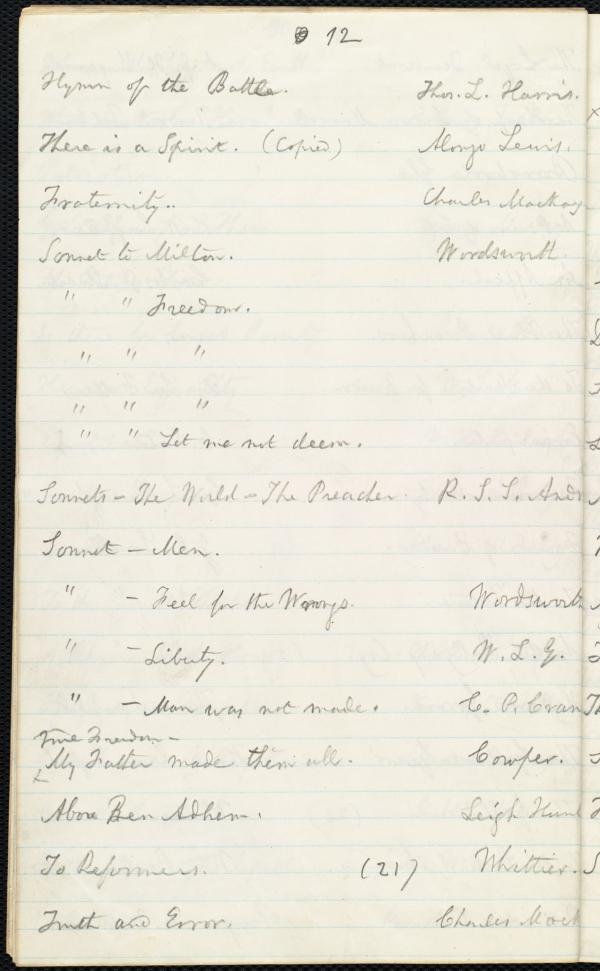 12
Hymn of the Battle. Thos. L. Harris.
There is a Spirit. (Copied) Alonzo Lewis.
Fraternity.. Charles Mackay
Sonnet to Milton. Wordsworth.
" " Freedom.
" " "
" " "
" " Let me not deem.
Sonnets - The World - The Preacher. R. S. S. And
Sonnet - Men.
" - Feel for the Wrongs. Wordsworth
" - Liberty. W. L. G.
" - Man was not made. C. P. Cran
True Freedom -
My Father made them all. Cowper.
Abou Ben Adhem. Leigh Hunt
To Reformers. (21) Whittier.
Truth and Error. Charles Mack